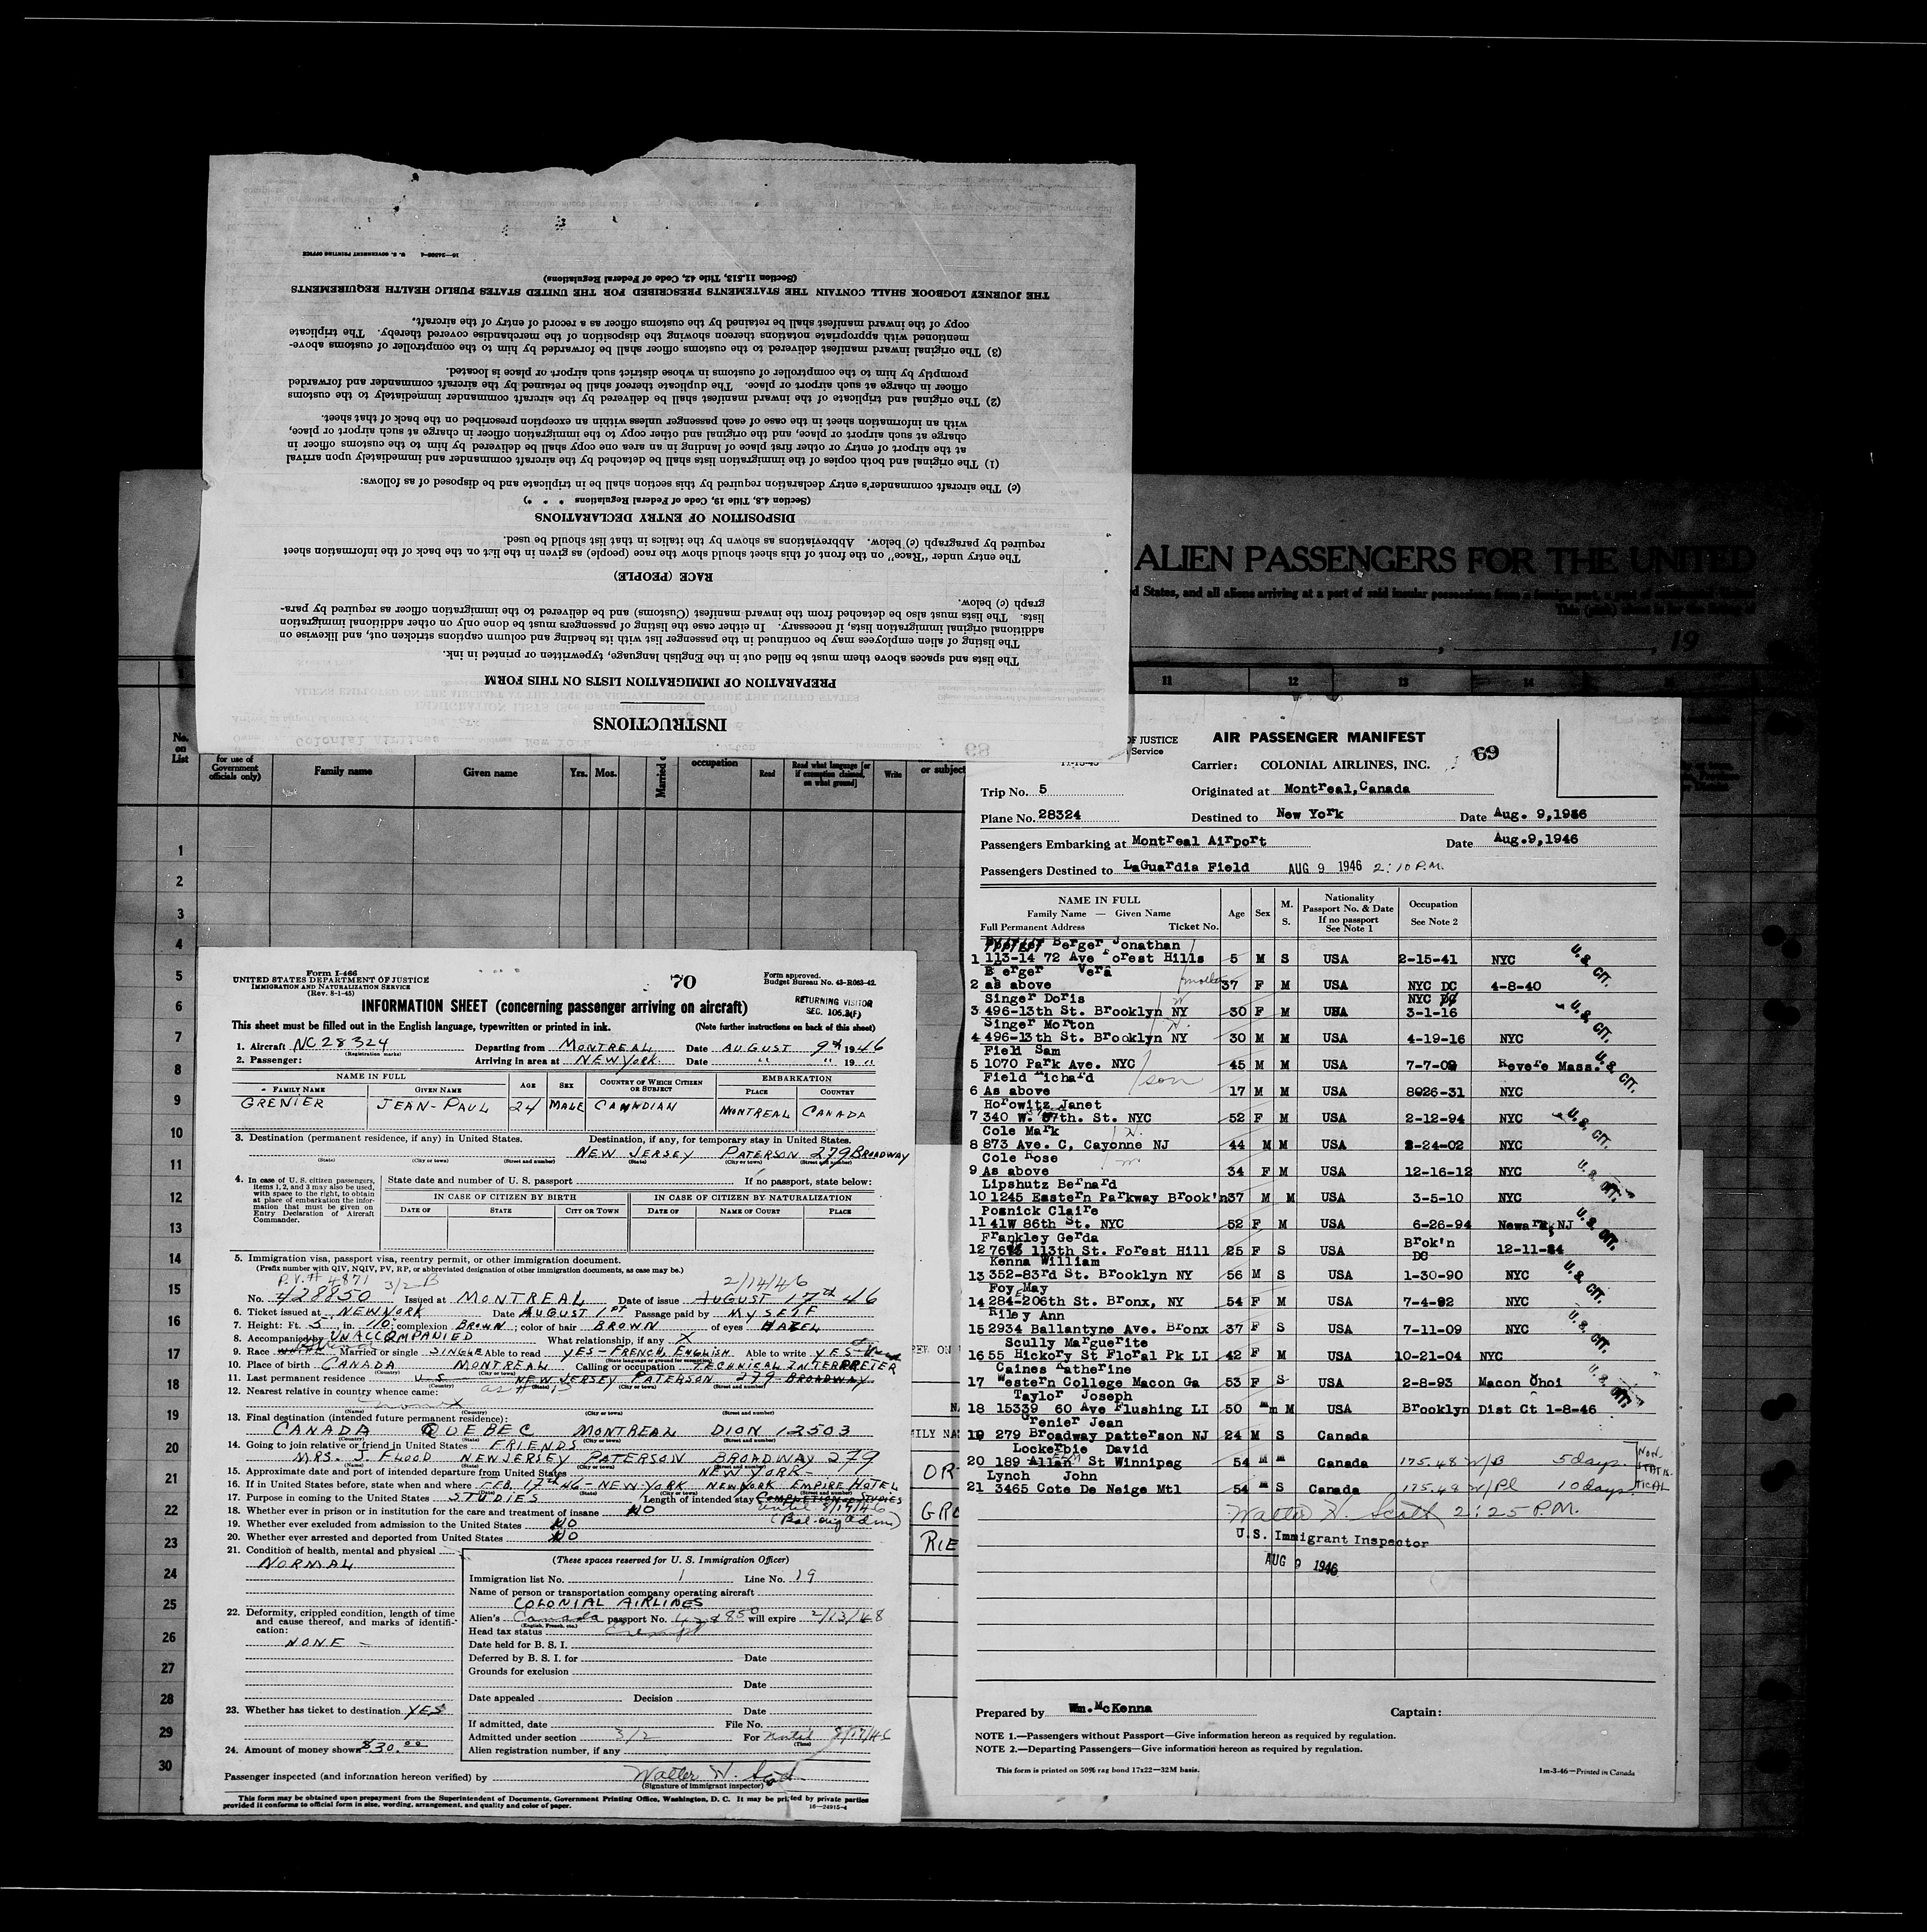 INSTRUCTIONS
PREPARATION OF IMMIGRATION LISTS ON THIS FORM
The lists and spaces above them must be filled out in the English language, typewritten or printed in ink.
The listing of alien employees may be continued in the passenger list with its heading and column captions stricken out, and likewise on
additional original immigration lists, if necessary. In either case the listing of passengers must be done only on other additional immigration
lists. The lists must also be detached from the inward manifest (Customs) and be delivered to the immigration officer as required by para-
graph (c) below.
RACE (PEOPLE)
The entry under "Race" on the front of this sheet should show the race (people) as given in the list on the back of the information sheet
required by paragraph (c) below. Abbreviations as shown by the italics in that list should be used.
DISPOSITION OF ENTRY DECLARATIONS
(Section 4.8, Title 19, Code of Federal Regulations * * *)
(c) The aircraft commander's entry declaration required by this section shall be in triplicate and be disposed of as follows:
(1) The original and both copies of the immigration lists shall be detached by the aircraft commander and immediately upon arrival
at the airport of entry or other first place of landing in an area one copy shall be delivered by him to the customs officer in
charge at such airport or place, and the original and other copy to the immigration officer in charge at such airport or place,
with an information sheet in the case of each passenger unless within an exception prescribed on the back of that sheet.
(2) The original and triplicate of the inward manifest shall be delivered by the aircraft commander immediately to the customs
officer in charge at such airport or place. The duplicate thereof shall be retained by the aircraft commander and forwarded
promptly by him to the comptroller of customs in whose district such airport or place is located.
(3) The original inward manifest delivered to the customs officer shall be forwarded by him to the comptroller of customs above-
mentioned with appropriate notations thereon showing the disposition of the merchandise covered thereby. The triplicate
copy of the inward manifest shall be retained by the customs officer as a record of entry of the aircraft.
THE JOURNEY LOGBOOK SHALL CONTAIN THE STATEMENTS PRESCRIBED FOR THE UNITED STATES PUBLIC HEALTH REQUIREMENTS
(Section 11.513, Title 42, Code of Federal Regulations)
U. S. GOVERNMENT PRINTING OFFICE
ALIEN PASSENGERS FOR THE UNITED
19
11 12 13 14
No. on List
for use of Government officials only)
Family name
Given name
Yrs. Mos.
occupation
Read
Read what language [or if exemption claimed, on what ground]
Write
or subject
1
2
3
4
5
6
7
8
9
10
11
12
13
14
15
16
17
18
19
20
21
22
23
24
25
26
27
28
29
30
Form I-466
UNITED STATES DEPARTMENT OF JUSTICE
IMMIGRATION AND NATURALIZATION SERVICE
(Rev. 8-1-45)
70
Form approved.
Budget Bureau No. 43-R063-42.
INFORMATION SHEET (concerning passenger arriving on aircraft)
RETURNING VISITOR
This sheet must be filled out in the English language, typewritten or printed in ink. (Note further instructions on back of this sheet)
1. Aircraft NC28324 Departing from MONTREAL Date AUGUST 9th 1946
(Registration marks)
2. Passenger: Arriving in area at NEW YORK. Date " " 19 "
NAME IN FULL AGE SEX COUNTRY OF WHICH CITIZEN OR SUBJECT EMBARKATION
FAMILY NAME GIVEN NAME PLACE COUNTRY
GRENIER JEAN-PAUL 24 MALE CANADIAN MONTREAL CANADA
3. Destination (permanent residence, if any) in United States. Destination, if any, for temporary stay in United States.
NEW JERSEY PATERSON 279 BROADWAY
(State) (City or town) (Street and number) (State) (City or town) (Street and number)
4. In case of U. S. citizen passengers, items 1, 2, and 3 may also be used, with space to the right, to obtain at place of embarkation the information that must be given on Entry Declaration of Aircraft Commander.
State date and number of U. S. passport If no passport, state below:
IN CASE OF CITIZEN BY BIRTH IN CASE OF CITIZEN BY NATURALIZATION
DATE OF STATE CITY OR TOWN DATE OF NAME OF COURT PLACE
5. Immigration visa, passport visa, reentry permit, or other immigration document.
(Prefix number with QIV, NQIV, PV, RP, or abbreviated designation of other immigration documents, as case may be.)
P.V.# 4871 3/2 B 2/14/46
No. 428850 Issued at MONTREAL Date of issue AUGUST 17th 46
6. Ticket issued at NEW YORK Date AUGUST 1st Passage paid by MYSELF
7. Height: Ft. 5 in. 10; complexion BROWN; color of hair BROWN of eyes HAZEL
8. Accompanied by UNACCOMPANIED What relationship, if any X
9. Race WHITE Married or single SINGLE Able to read YES-FRENCH, ENGLISH Able to write YES
10. Place of birth CANADA MONTREAL Calling or occupation TECHNICAL INTERPRETER
11. Last permanent residence U.S. NEW JERSEY PATERSON 279 BROADWAY
12. Nearest relative in country whence came:
13. Final destination (intended future permanent residence):
CANADA QUEBEC MONTREAL DION 12503
14. Going to join relative or friend in United States FRIENDS
MRS. J. FLOOD NEW JERSEY PATERSON BROADWAY 279
15. Approximate date and port of intended departure from United States NEW YORK
16. If in United States before, state when and where FEB. 17th 46-NEW YORK NEWYORK EMPIRE HOTEL
17. Purpose in coming to the United States STUDIES Length of intended stay COMPLETION OF STUDIES
until 8/17/46
18. Whether ever in prison or in institution for the care and treatment of insane NO
19. Whether ever excluded from admission to the United States NO
20. Whether ever arrested and deported from United States NO
21. Condition of health, mental and physical
NORMAL
22. Deformity, crippled condition, length of time and cause thereof, and marks of identification:
NONE
23. Whether has ticket to destination YES
24. Amount of money shown $30.00
(These spaces reserved for U. S. Immigration Officer)
Immigration list No. 1 Line No. 19
Name of person or transportation company operating aircraft
COLONIAL AIRLINES
Alien's Canada passport No. 428850 will expire 2/13/48
(English, French, etc.)
Head tax status Exempt
Date held for B. S. I.
Deferred by B. S. I. for Date
Grounds for exclusion
Date
Date appealed Decision
Date
If admitted, date File No.
Admitted under section 3/2 For until 8/17/46
(Time)
Alien registration number, if any
Passenger inspected (and information hereon verified) by Walter H. Scott
(Signature of immigrant inspector)
This form may be obtained upon prepayment from the Superintendent of Documents, Government Printing Office, Washington, D. C. It may be printed by private parties
provided it conforms to official form in size, wording, arrangement, and quality and color of paper. 16—24915-4
OF JUSTICE
Service
AIR PASSENGER MANIFEST
69
Carrier: COLONIAL AIRLINES, INC.
Trip No. 5 Originated at Montreal,Canada
Plane No. 28324 Destined to New York Date Aug. 9,1946
Passengers Embarking at Montreal Airport Date Aug.9,1946
Passengers Destined to LaGuardia Field AUG 9 1946 2:10 P.M.
NAME IN FULL Age Sex M. S. Nationality Passport No. & Date If no passport See Note 1 Occupation See Note 2
Family Name — Given Name
Full Permanent Address Ticket No.
Berger Jonathan
1 113-14 72 Ave Forest Hills 5 M S USA 2-15-41 NYC U.S. CIT.
Berger Vera
2 as above mother 37 F M USA NYC DC 4-8-40
Singer Doris NYC
3 496-13th St. Brooklyn NY 30 F M USA 3-1-16 U.S. CIT.
Singer Morton
4 496-13th St. Brooklyn NY 30 M M USA 4-19-16 NYC
Field Sam
5 1070 Park Ave. NYC 45 M M USA 7-7-00 Revere Mass. U.S. CIT.
Field Richard son
6 As above 17 M M USA 8026-31 NYC
Horowitz Janet
7 340 W. 57th. St. NYC 52 F M USA 2-12-94 NYC U.S. CIT.
Cole Mark
8 873 Ave. C, Cayonne NJ 44 M M USA 2-24-02 NYC
Cole Rose
9 As above 34 F M USA 12-16-12 NYC U.S. CIT.
Lipshutz Bernard
10 1245 Eastern Parkway Brook'n 37 M M USA 3-5-10 NYC
Posnick Claire
11 41W 86th St. NYC 52 F M USA 6-26-94 Newark, NJ U.S. CIT.
Frankley Gerda Brok'n
12 113th St. Forest Hill 25 F S USA DC 12-11-
Kenna William
13 352-83rd St. Brooklyn NY 56 M S USA 1-30-90 NYC U.S. CIT.
Foy May
14 284-206th St. Bronx, NY 54 F M USA 7-4-92 NYC
Riley Ann
15 2934 Ballantyne Ave. Bronx 37 F S USA 7-11-09 NYC U.S. CIT.
Scully Marguerite
16 55 Hickory St Floral Pk LI 42 F M USA 10-21-04 NYC
Caines Katherine
17 Western College Macon Ga 53 F S USA 2-8-93 Macon Ohoi U.S. CIT.
Taylor Joseph
18 15339 60 Ave Flushing LI 50 m M USA Brooklyn Dist Ct 1-8-46
Grenier Jean
19 279 Broadway patterson NJ 24 M S Canada
Lockerbie David
20 189 St Winnipeg 54 m m Canada 175.48 W/B 5 days
Lynch John
21 3465 Cote De Neige Mtl 54 m S Canada 175.48 W/Pl 10 days
NON. STATISTICAL
Walter H. Scott 2:25 P.M.
U.S. Immigrant Inspector
AUG 9 1946
Prepared by Wm.McKenna Captain:
NOTE 1.—Passengers without Passport—Give information hereon as required by regulation.
NOTE 2.—Departing Passengers—Give information hereon as required by regulation.
This form is printed on 50% rag bond 17x22—32M basis. 1m-3-46—Printed in Canada